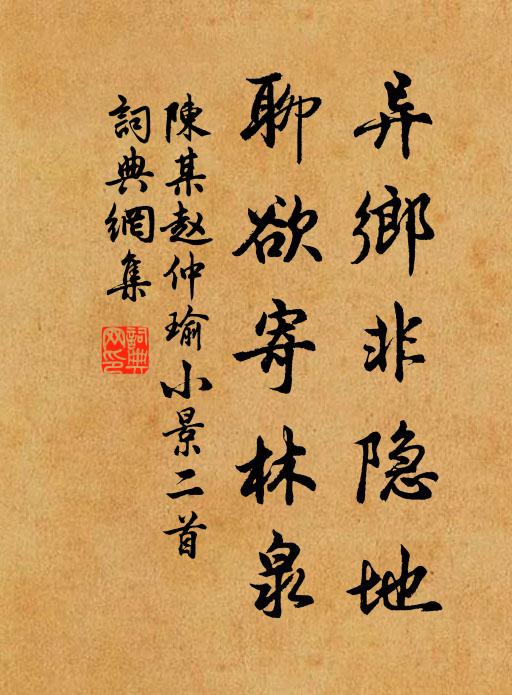 异鄉非隐地
聊欲寄林泉
陳某赵仲瑜小景二首
詞典網集
詞典
网印